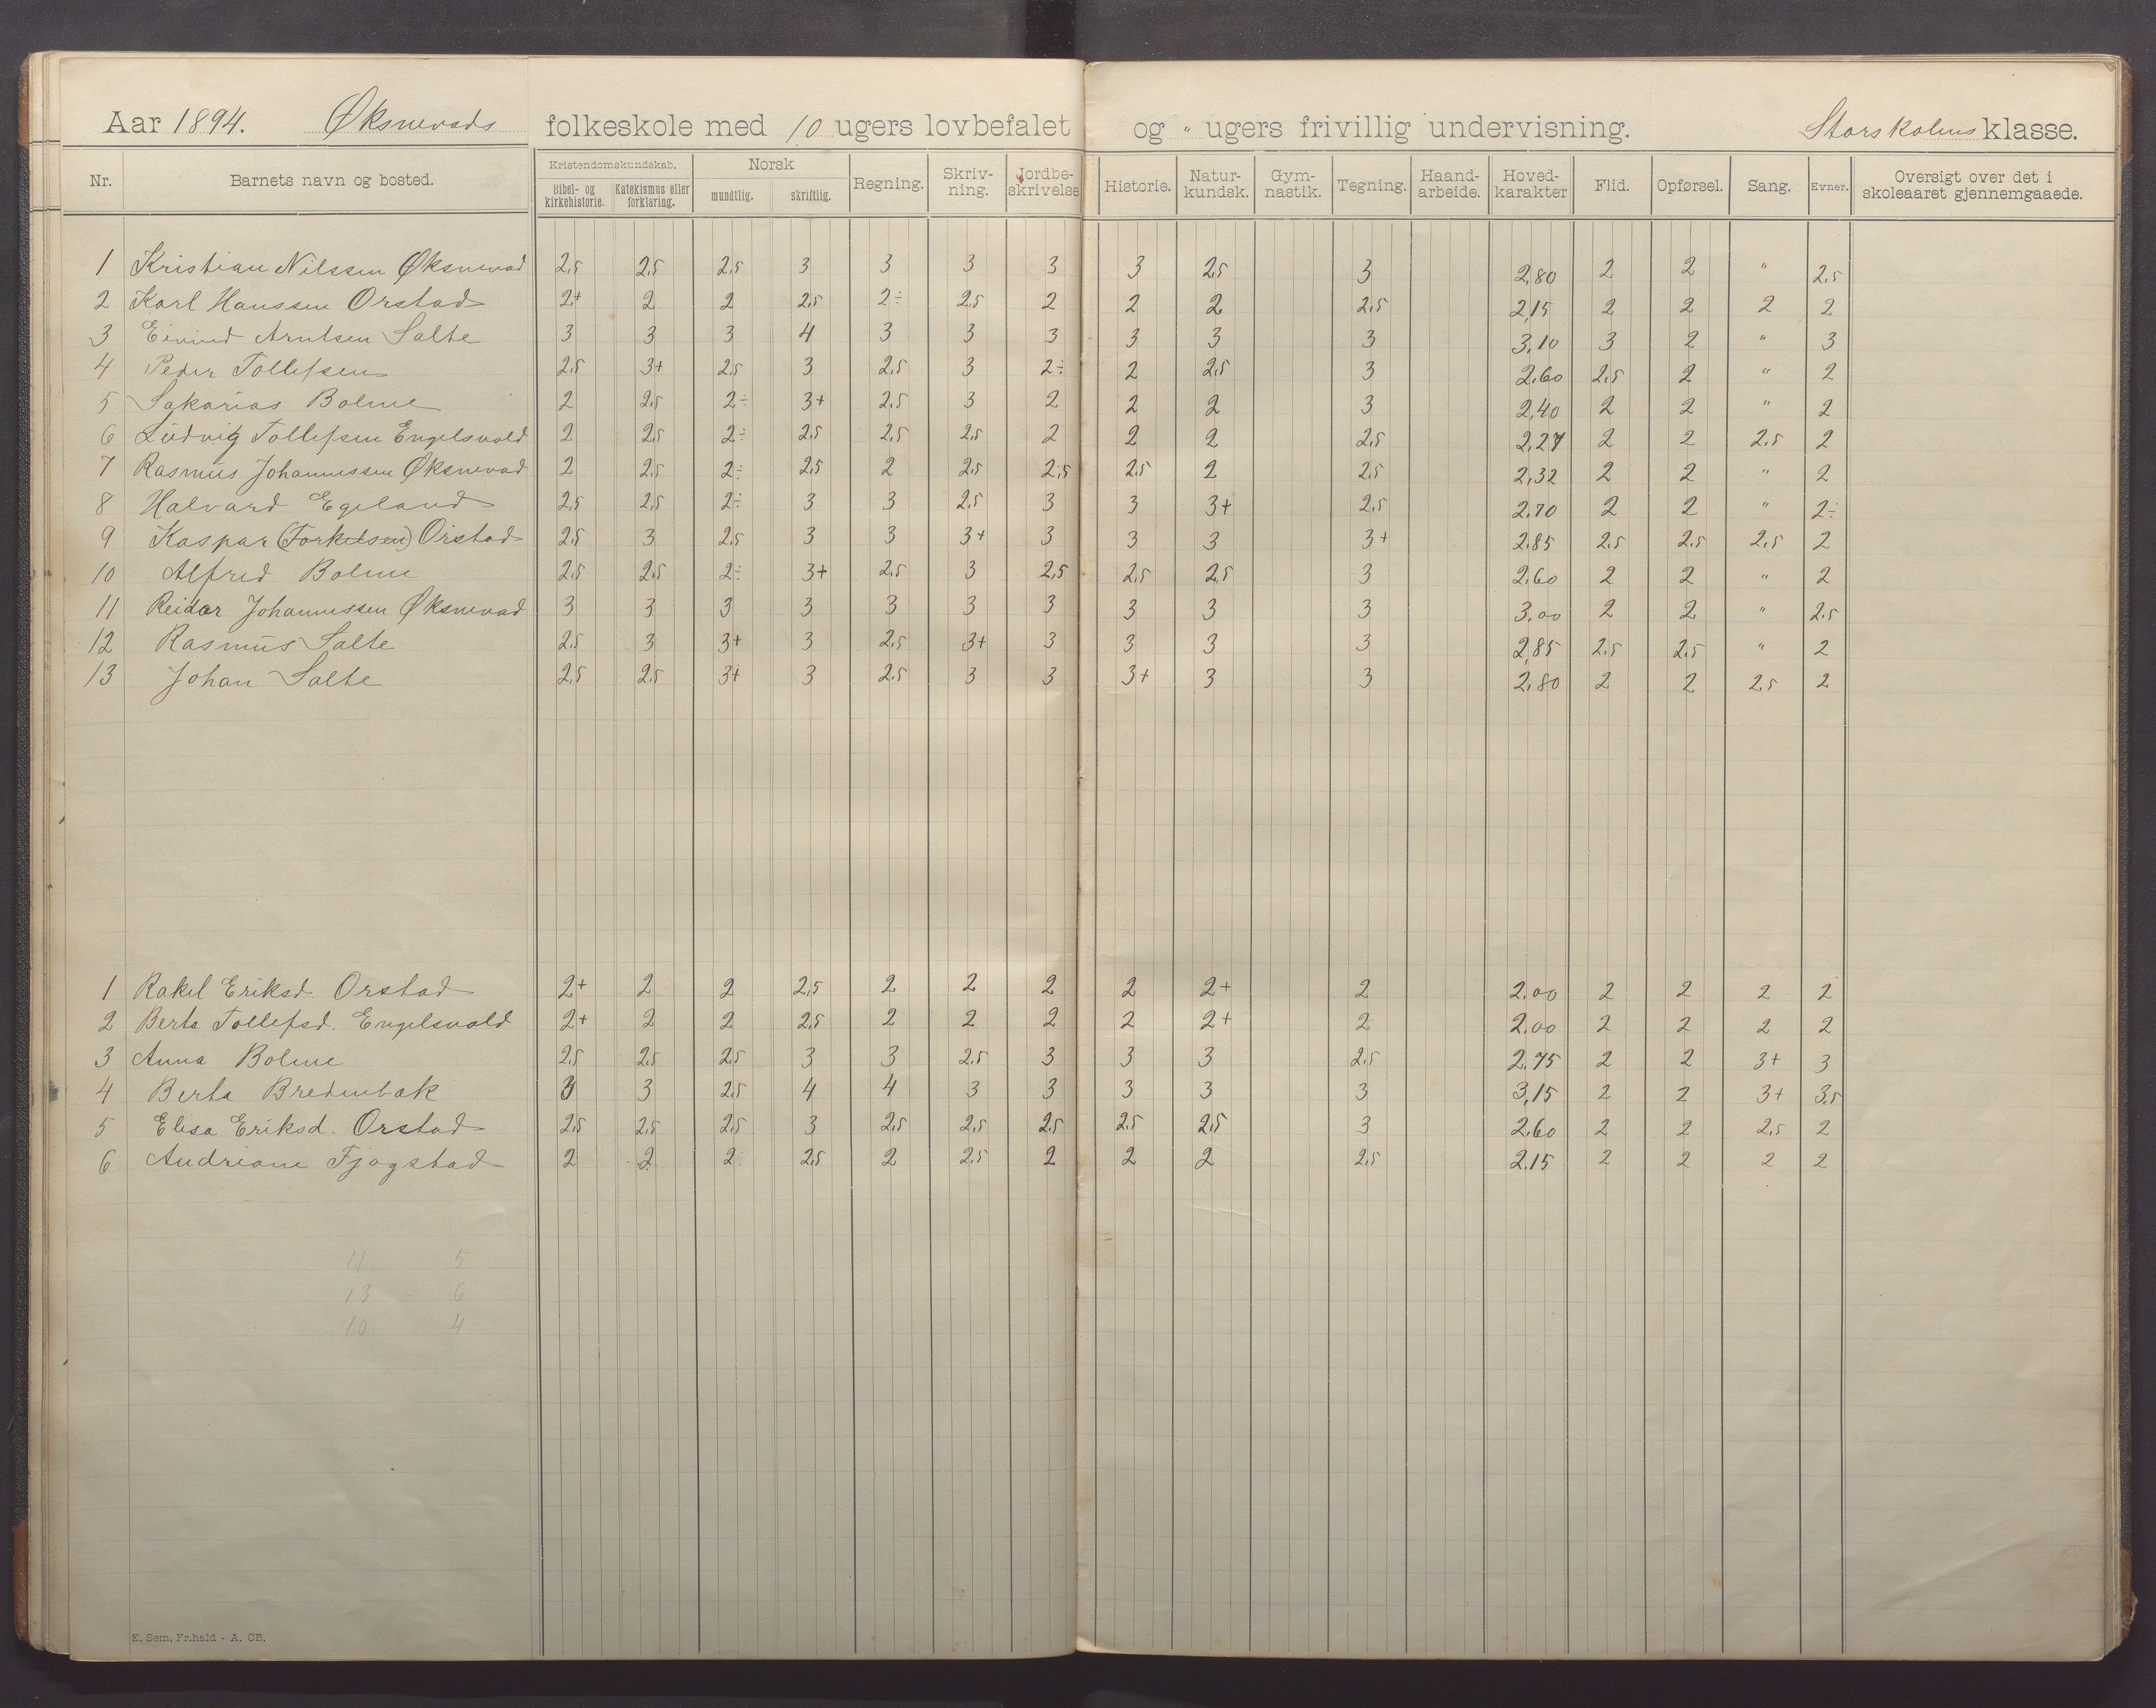 Aar 1894. Øksnevads folkeskole med 10 ugers lovbefalet og " ugers frivillig undervisning. Storskolens klasse.
Nr. Barnets navn og bosted. Kristendomskundskab. Bibel- og kirkehistorie. Katekismus eller forklaring. Norsk mundtlig. skriftlig. Regning. Skriv-ning. Jordbe-skrivelse Historie. Natur-kundsk. Gym-nastik. Tegning. Haand-arbeide. Hoved-karakter Flid. Opførsel. Sang. Evner. Oversigt over det i skoleaaret gjennemgaaede.
1 Kristian Nilssen Øksnevad 2,5 2,5 2,5 3 3 3 3 3 2,5 3 2,80 2 2 " 2,5
2 Karl Hanssen Orstad 2+ 2 2 2,5 2÷ 2,5 2 2 2 2,5 2,15 2 2 2 2
3 Eivind Arntsen Salte 3 3 3 4 3 3 3 3 3 3 3,10 3 2 " 3
4 Peder Tollefsen 2,5 3+ 2,5 3 2,5 3 2÷ 2 2,5 3 2,60 2,5 2 " 2
5 Sakarias Bolme 2 2,5 2÷ 3+ 2,5 3 2 2 2 3 2,40 2 2 " 2
6 Ludvig Tollefsen Engelsvold 2 2,5 2÷ 2,5 2,5 2,5 2 2 2 2,5 2,27 2 2 2,5 2
7 Rasmus Johannessen Øksnevad 2 2,5 2÷ 2,5 2 2,5 2,5 2,5 2 2,5 2,32 2 2 " 2
8 Halvard Egeland 2,5 2,5 2÷ 3 3 2,5 3 3 3+ 2,5 2,70 2 2 " 2÷
9 Kaspar (Torkelsen) Orstad 2,5 3 2,5 3 3 3+ 3 3 3 3+ 2,85 2,5 2,5 2,5 2
10 Alfred Bolme 2,5 2,5 2÷ 3+ 2,5 3 2,5 2,5 2,5 3 2,60 2 2 " 2
11 Reidar Johannessen Øksnevad 3 3 3 3 3 3 3 3 3 3 3,00 2 2 " 2,5
12 Rasmus Salte 2,5 3 3+ 3 2,5 3+ 3 3 3 3 2,85 2,5 2,5 " 2
13 Johan Salte 2,5 2,5 3+ 3 2,5 3 3 3+ 3 3 2,80 2 2 2,5 2
1 Rakel Eriksd. Orstad 2+ 2 2 2,5 2 2 2 2 2+ 2 2.00 2 2 2 2
2 Berta Tollefsd. Engelsvold 2+ 2 2 2,5 2 2 2 2 2+ 2 2.00 2 2 2 2
3 Anna Bolme 2,5 2,5 2,5 3 3 2,5 3 3 3 2,5 2,75 2 2 3+ 3
4 Berta Bredenbak 3 3 2,5 4 4 3 3 3 3 3 3,15 2 2 3+ 3,5
5 Elisa Eriksd. Orstad 2,5 2,5 2,5 3 2,5 2,5 2,5 2,5 2,5 3 2,60 2 2 2,5 2
6 Andriane Fjogstad 2 2 2 2,5 2 2,5 2 2 2 2,5 2.15 2 2 2 2
11 5
13 - 6
10 4
E. Sem, Fr.hald - A. CB.